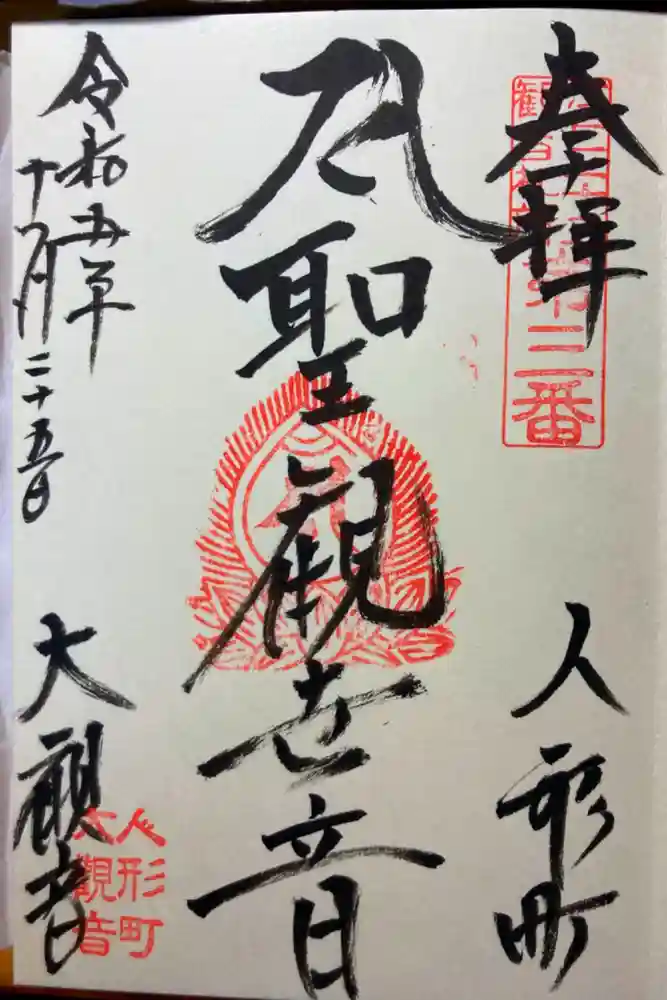 奉拝
第三番
人形町
聖觀世音
令和五年
二十五日
大観音
人形町
大觀音